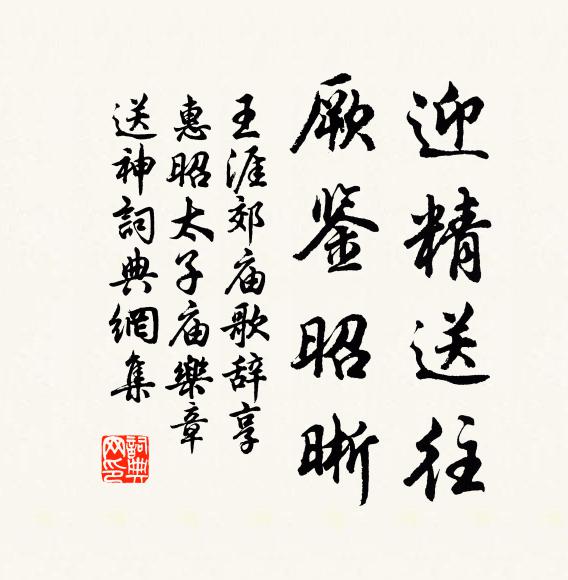 迎精送往
厥鉴昭晰
王涯郊庙歌辞享
惠昭太子庙樂章
送神詞典網集
詞典网印